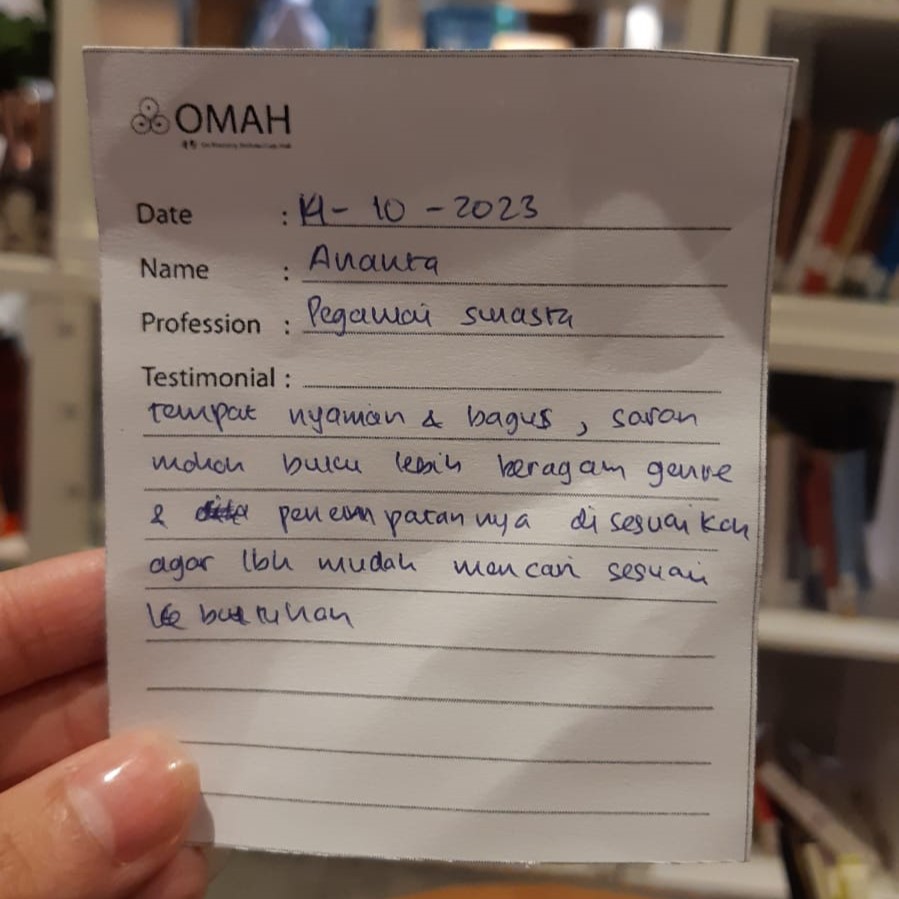 OMAH
Date : 14- 10 - 2023
Name : Ananta
Profession : Pegawai swasta
Testimonial :
tempat nyaman & bagus, saran
mohon buku lebih beragam genre
& penempatannya disesuaikan
agar lbh mudah mencari sesuai
kebutuhan